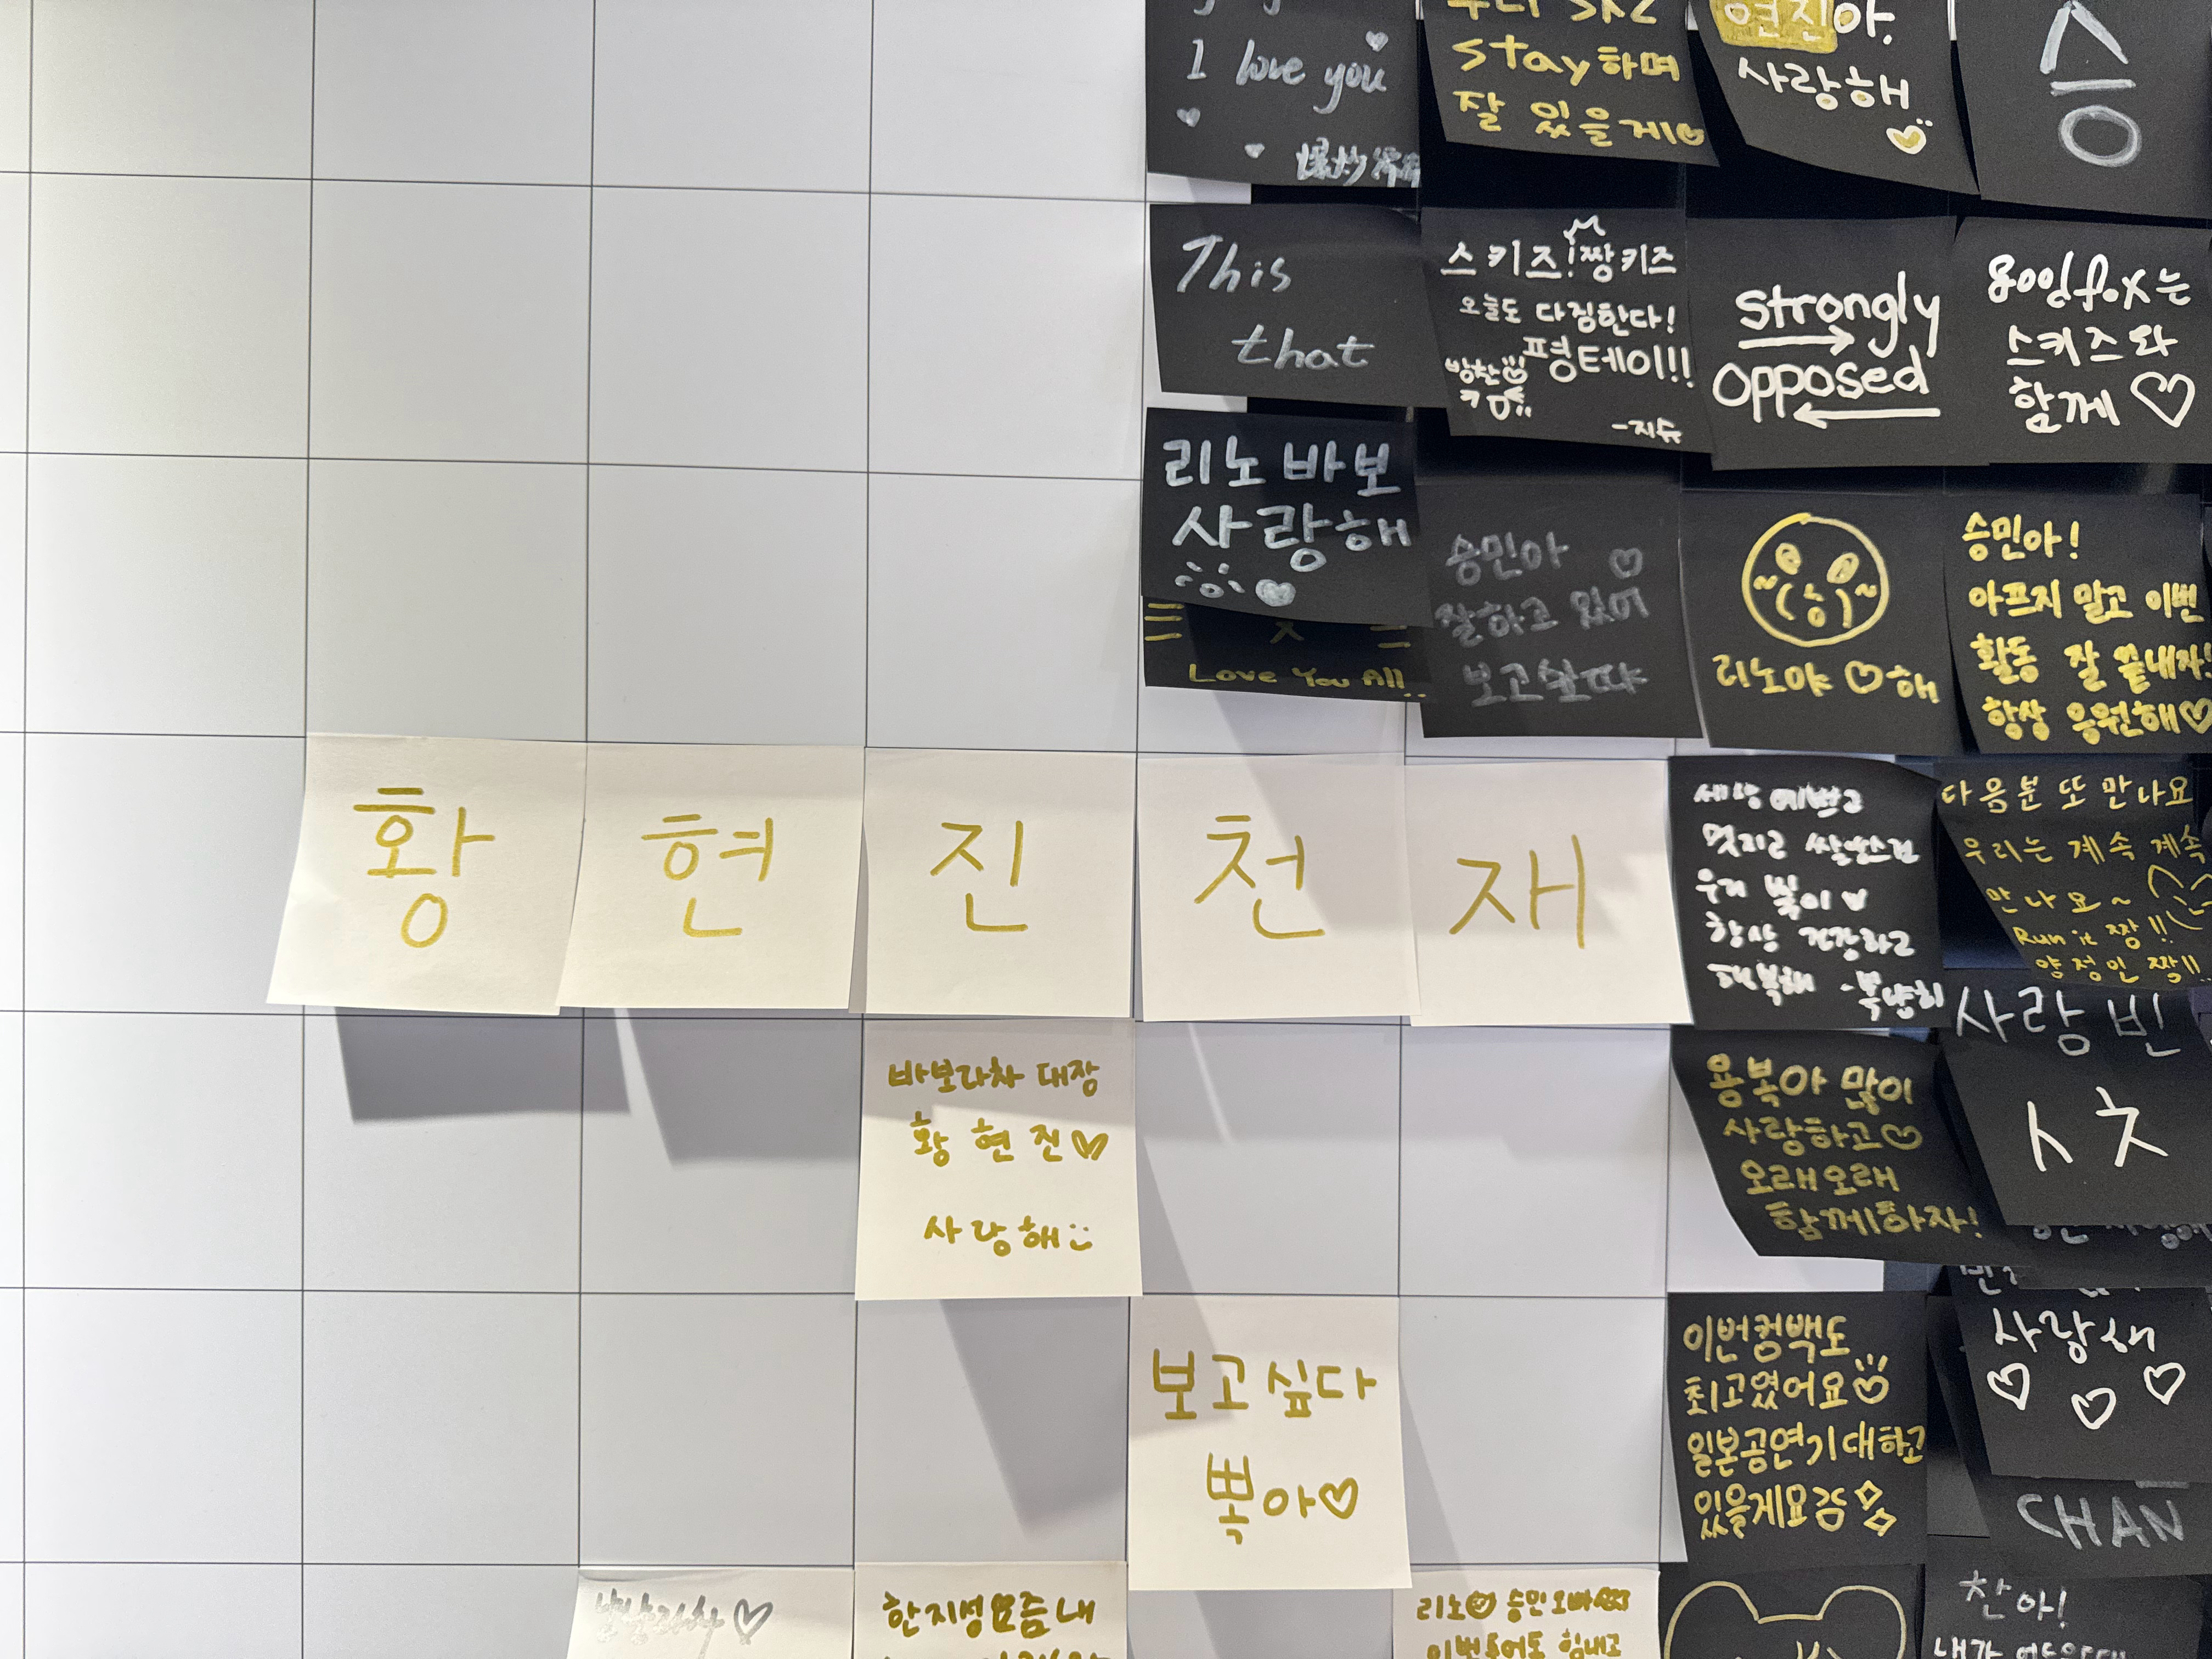 I love you
우리 SKZ
stay하며
잘 있을게
현진아.
사랑해
승
This
that
스키즈! 짱키즈
오늘도 다짐한다!
평테이!!
방찬
-지슈
strongly
opposed
good fox는
스키즈와
함께
리노 바보
사랑해
Love You All..
승민아
잘하고 있어
보고싶따
리노야 ♡해
승민아!
아프지 말고 이번
활동 잘 끝내자!
항상 응원해♡
황 현 진 천 재
세상 예쁘고
멋지고 쌀알스런
우리
항상 건강하고
행복해
다음분 또 만나요
우리는 계속 계속
만나요~
Run it 짱!!
양정인 짝!!
사랑 빈
바보라차 대장
황 현 진♡
사랑해
용복아 많이
사랑하고♡
오래오래
함께하자!
ㅅ ㅊ
보고싶다
뽁아♡
이번컴백도
최고였어요
일본공연기대하고
있을게요
사랑해
CHAN
한지성 요즘 내
리노 승민오빠
이번 투어도 힘내고
찬아!
내가